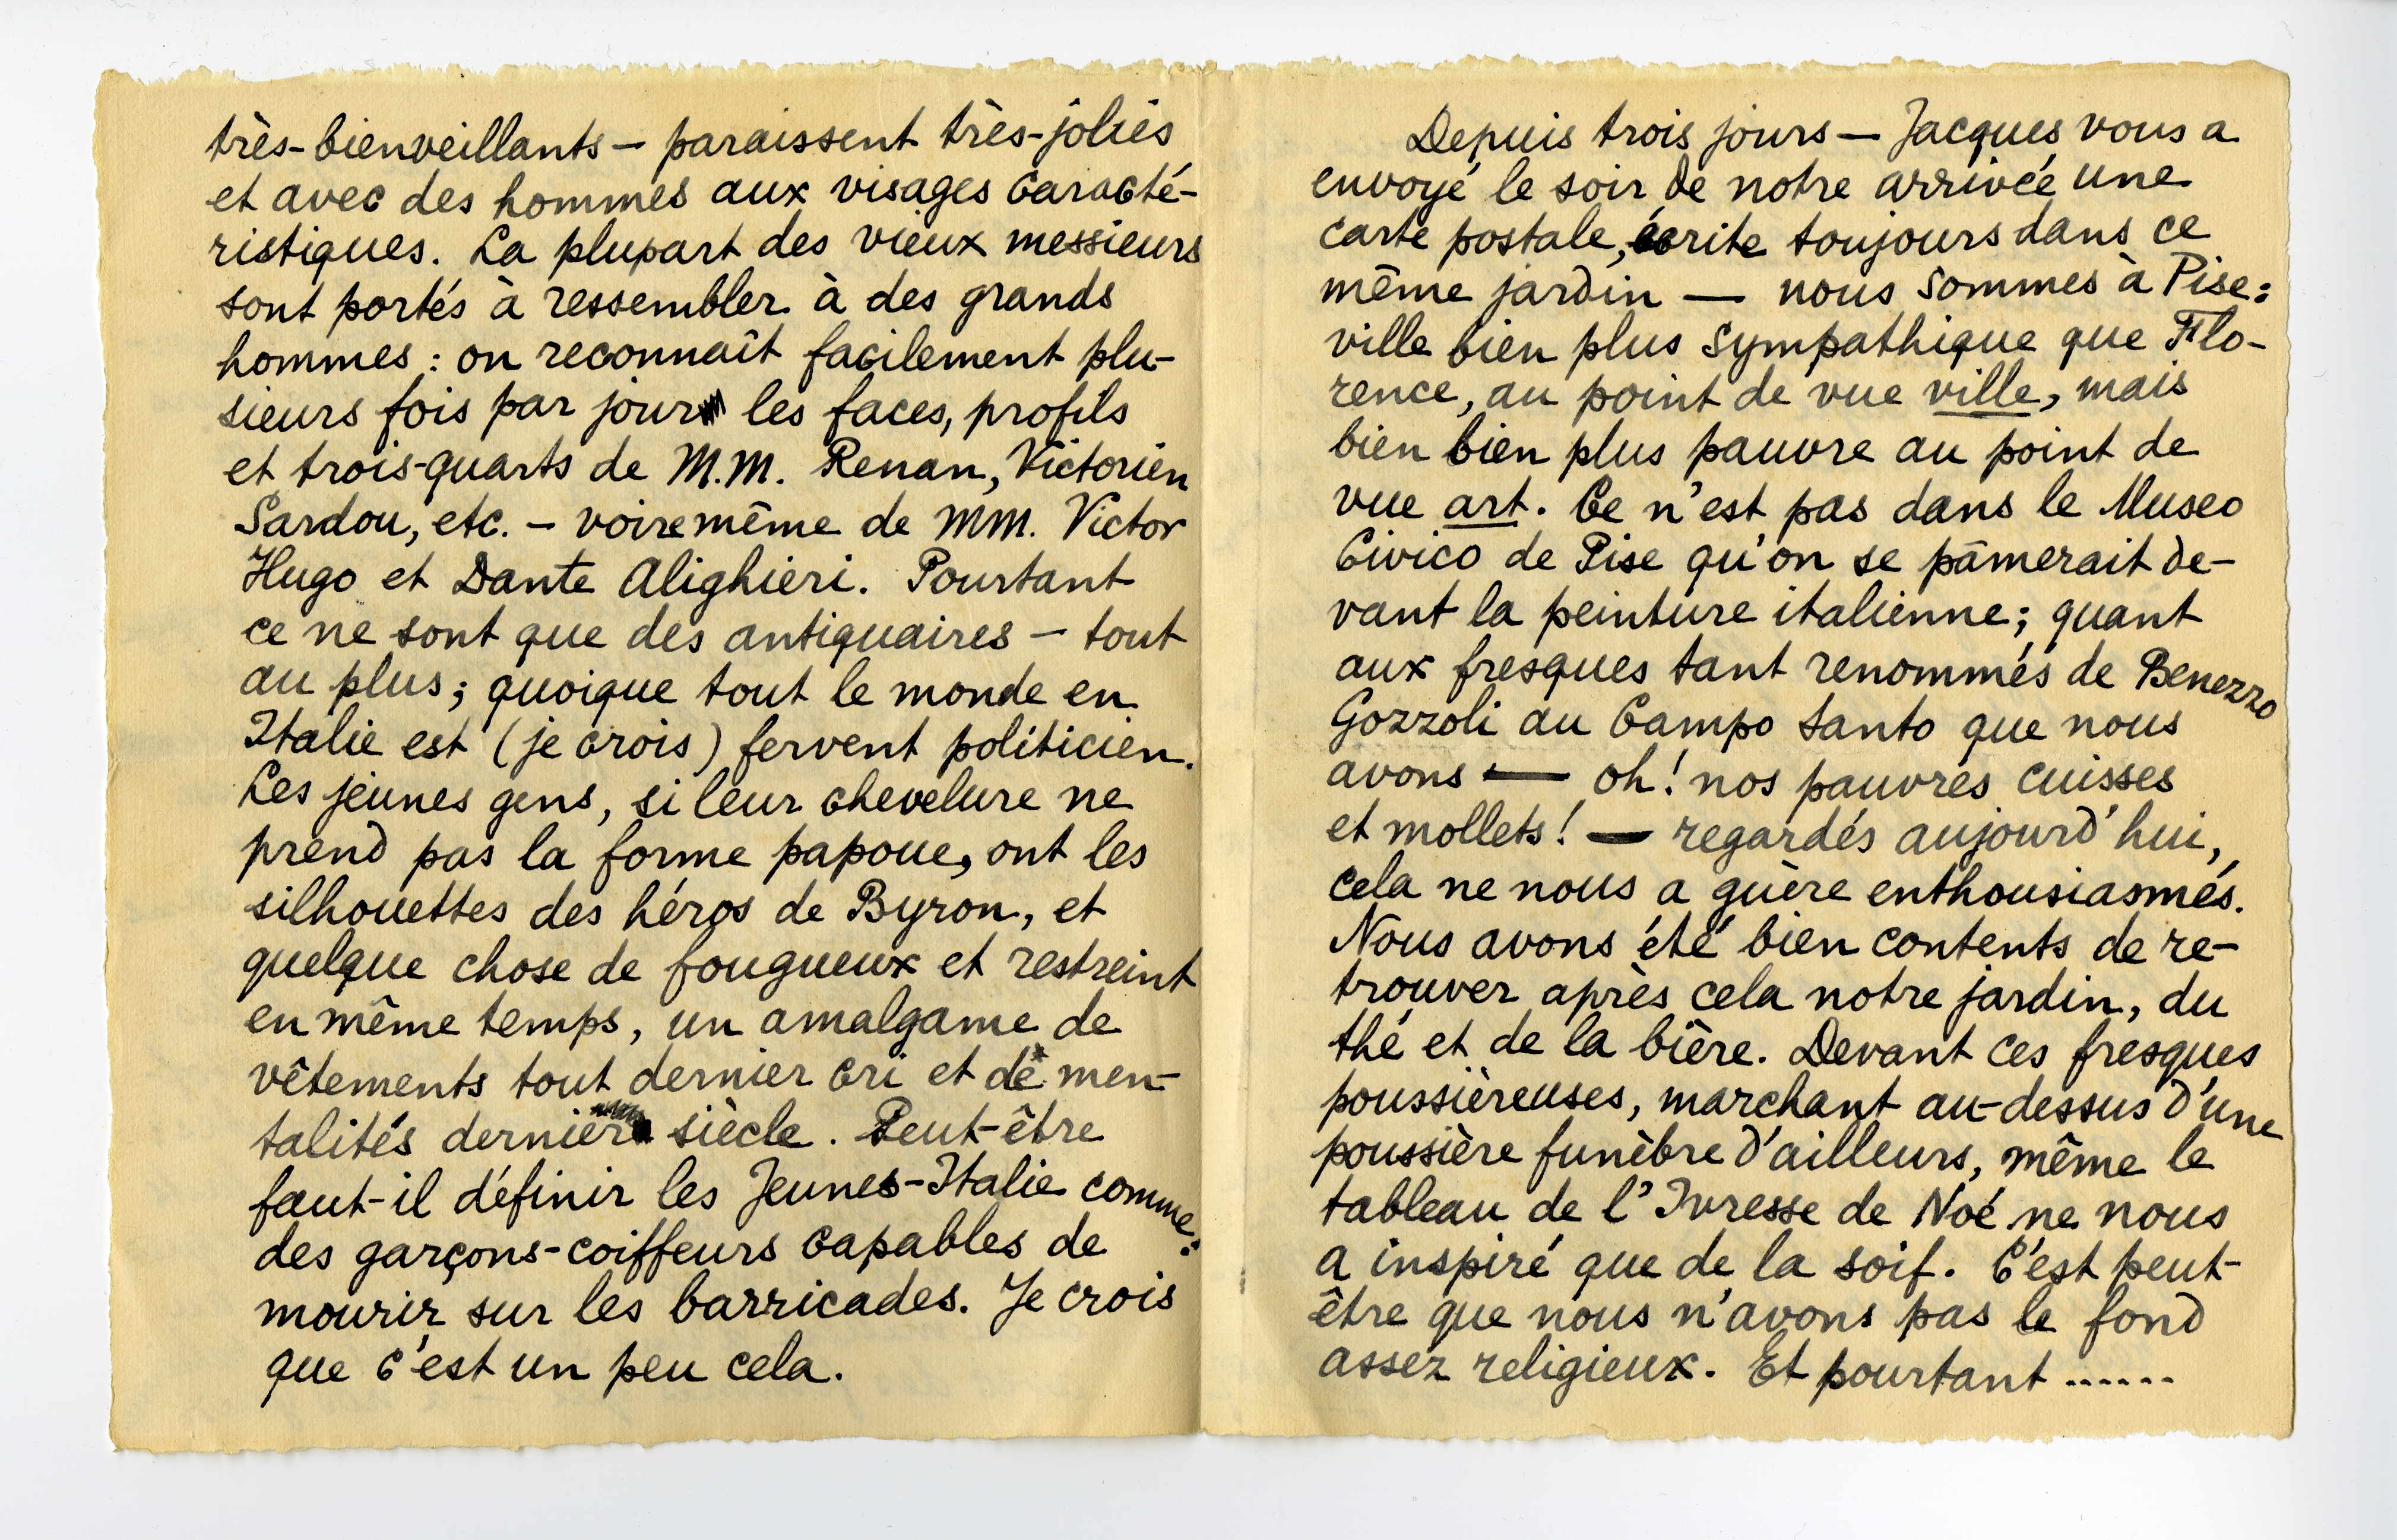 très-bienveillants — paraissent très-joliés
et avec des hommes aux visages caracté-
ristiques. La plupart des vieux messieurs
sont portés à ressembler à des grands
hommes : on reconnaît facilement plu-
sieurs fois par jour les faces, profils
et trois-quarts de M.M. Renan, Victorien
Sardou, etc. — voire même de MM. Victor
Hugo et Dante Alighieri. Pourtant
ce ne sont que des antiquaires — tout
au plus ; quoique tout le monde en
Italie est (je crois) fervent politicien.
Les jeunes gens, si leur chevelure ne
prend pas la forme papoue, ont les
silhouettes des héros de Byron, et
quelque chose de fougueux et restreint
en même temps, un amalgame de
vêtements tout dernier cri et de men-
talités dernier siècle. Peut-être
faut-il définir les Jeunes-Italie comme :
des garçons-coiffeurs capables de
mourir sur les barricades. Je crois
que c'est un peu cela.
Depuis trois jours — Jacques vous a
envoyé le soir de notre arrivée une
carte postale, écrite toujours dans ce
même jardin — nous sommes à Pise :
ville bien plus sympathique que Flo-
rence, au point de vue ville, mais
bien bien plus pauvre au point de
vue art. Ce n'est pas dans le Museo
Civico de Pise qu'on se pâmerait de-
vant la peinture italienne ; quant
aux fresques tant renommés de Benezzo
Gozzoli au Campo Santo que nous
avons — oh ! nos pauvres cuisses
et mollets ! — regardés aujourd'hui,
cela ne nous a guère enthousiasmés.
Nous avons été bien contents de re-
trouver après cela notre jardin, du
thé et de la bière. Devant ces fresques
poussièreuses, marchant au-dessus d'une
poussière funèbre d'ailleurs, même le
tableau de l'Ivresse de Noé ne nous
a inspiré que de la soif. C'est peut-
être que nous n'avons pas le fond
assez religieux. Et pourtant ......